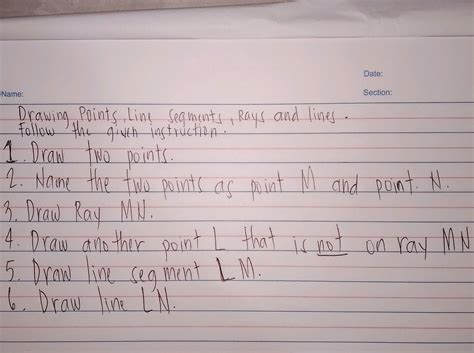 Date:
Name: Section:
Drawing Points, Line segments, Rays and lines.
Follow the given instruction.
1. Draw two points.
2. Name the two points as point M and point N.
3. Draw Ray MN.
4. Draw another point L that is not on ray MN
5. Draw line segment LM.
6. Draw line LN.